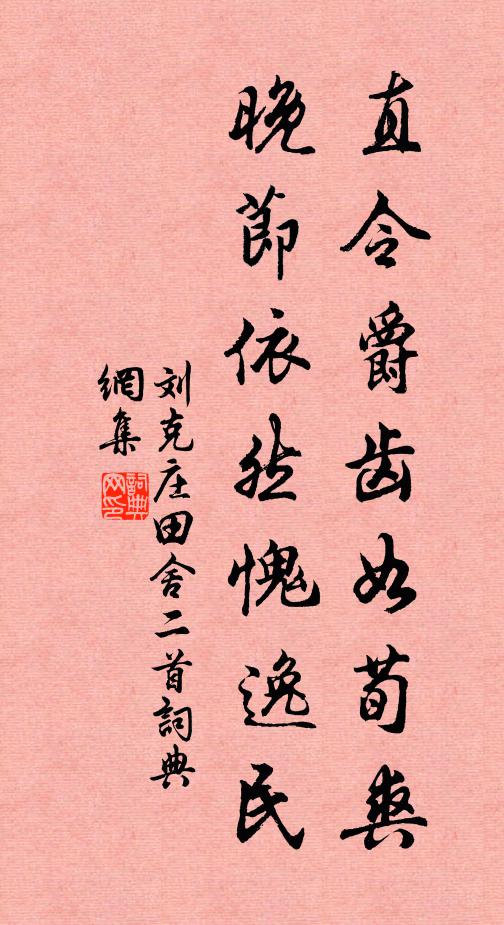 直令爵齿如荀爽
晚节依然愧逸民
刘克庄田舍二首詞典
網集
詞典
网印